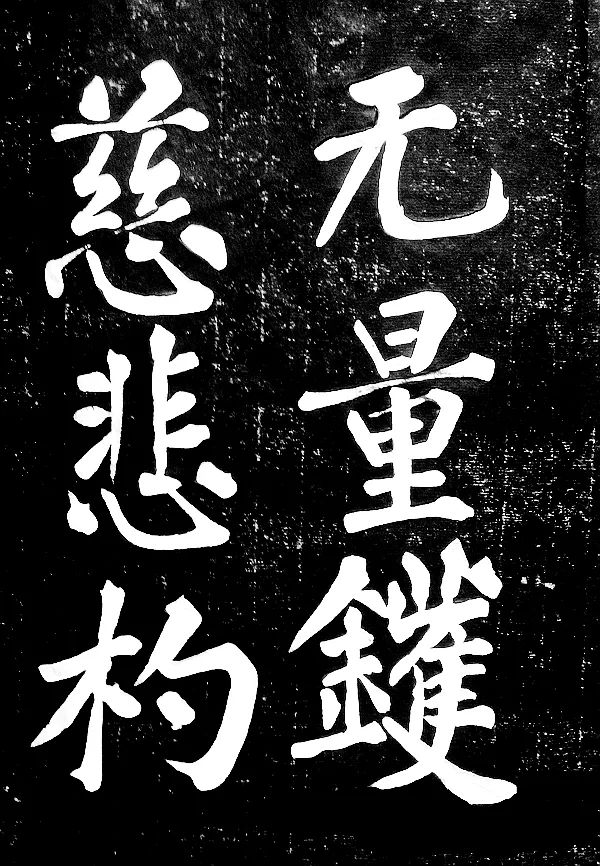 无量鑊
慈悲杓